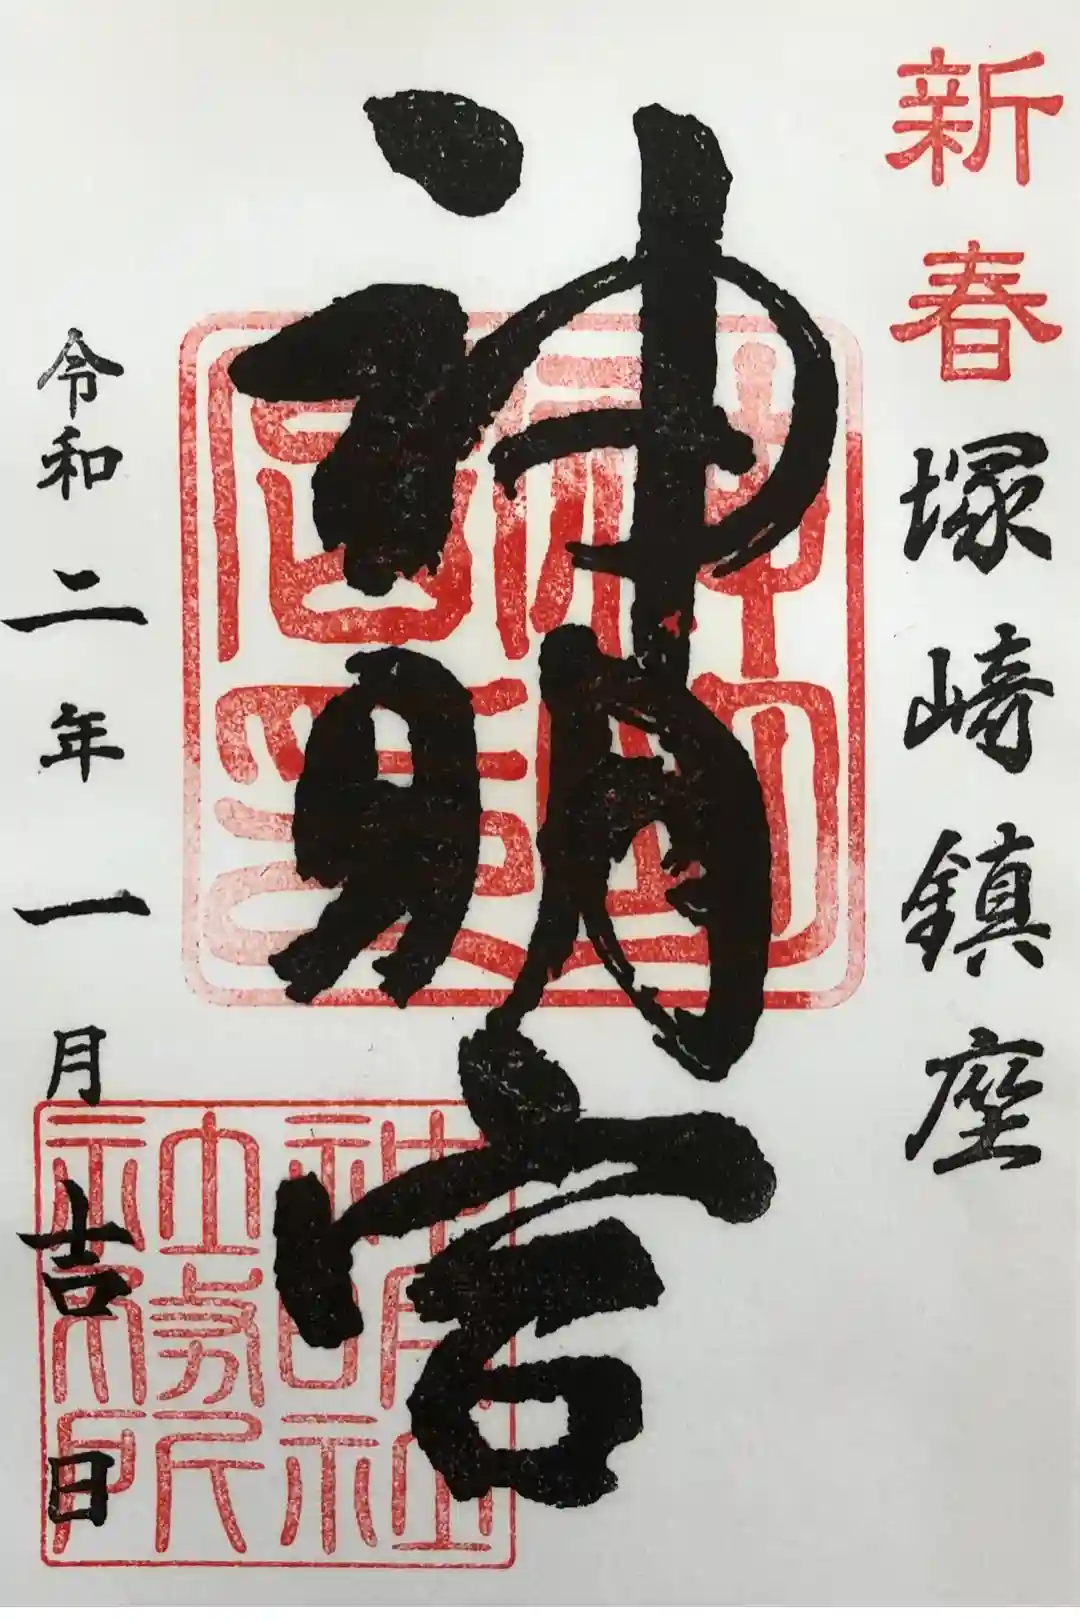 新春
塚崎鎮座
神明宮
令和二年一月吉日
神明社
社務所